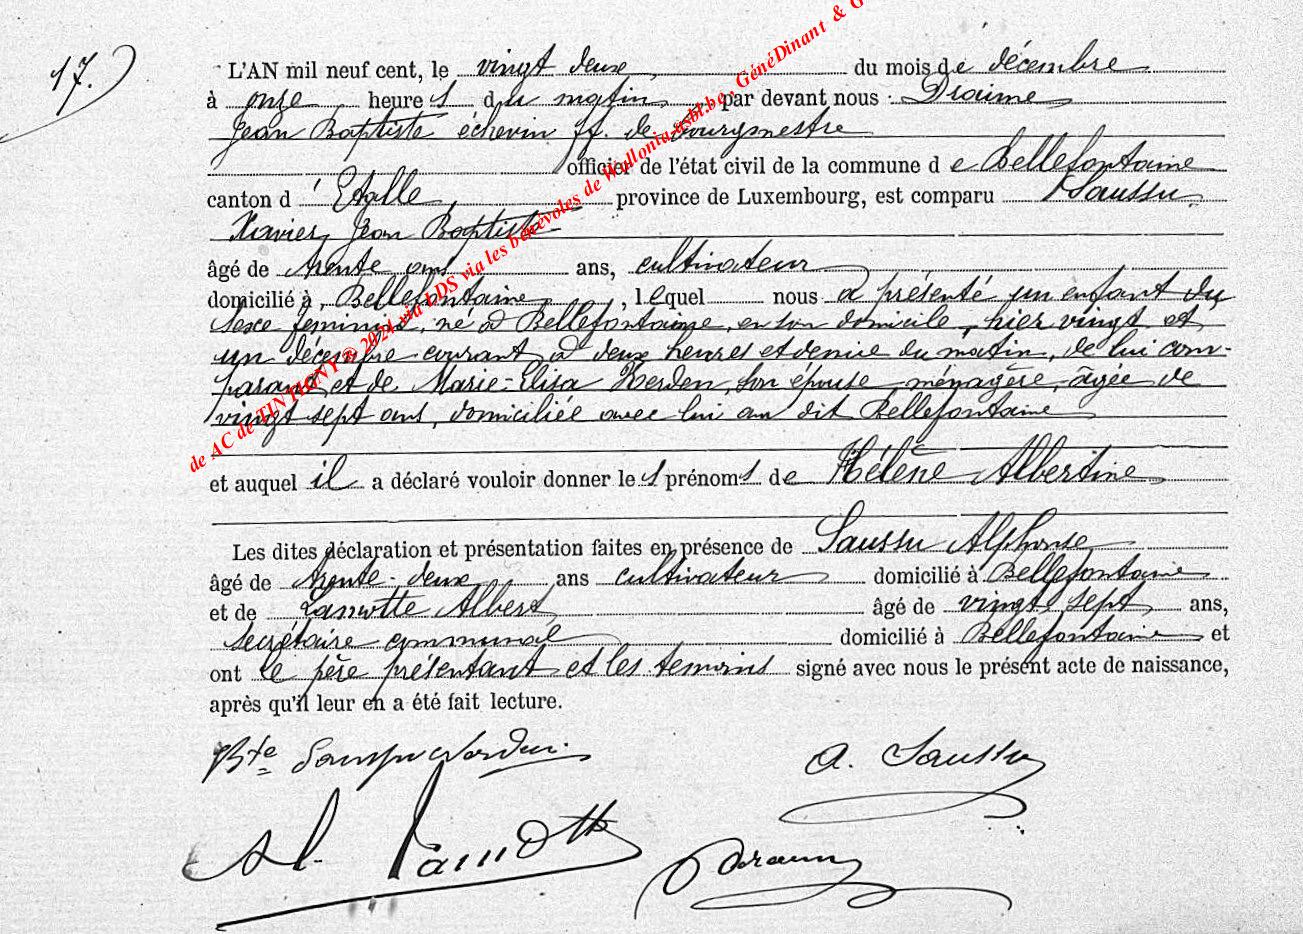 17.
L'AN mil neuf cent, le vingt deux, du mois de décembre
à onze heures du matin, par devant nous Draime
Jean Baptiste échevin ff. de bourgmestre
officier de l'état civil de la commune de Bellefontaine
canton d'Etalle, province de Luxembourg, est comparu Saussu
Xiavier, Jean Baptiste
âgé de trente ans ans, cultivateur
domicilié à Bellefontaine, lequel nous a présenté un enfant du
sexe feminin, né à Bellefontaine, en son domicile, hier vingt et
un décembre courant à deux heures et demie du matin, de lui com-
parant et de Marie-Elisa son épouse ménagère, âgée de
vingt sept ans, domiciliée avec lui au dit Bellefontaine
et auquel il a déclaré vouloir donner les prénoms de Hélène Albertine
Les dites déclaration et présentation faites en présence de Saussu Alphonse
âgé de trente-deux ans cultivateur domicilié à Bellefontaine
et de Lamotte Albert âgé de vingt sept ans,
secrétaire communal domicilié à Bellefontaine et
ont le père présentant et les temoins signé avec nous le présent acte de naissance,
après qu'il leur en a été fait lecture.
Bte Saussu
A. Saussu
Al. Lamotte
de AC de TINTIGNY @ 2024 via LDS via les bénévoles de Wallonia-asbl.be, GénéDinant & G